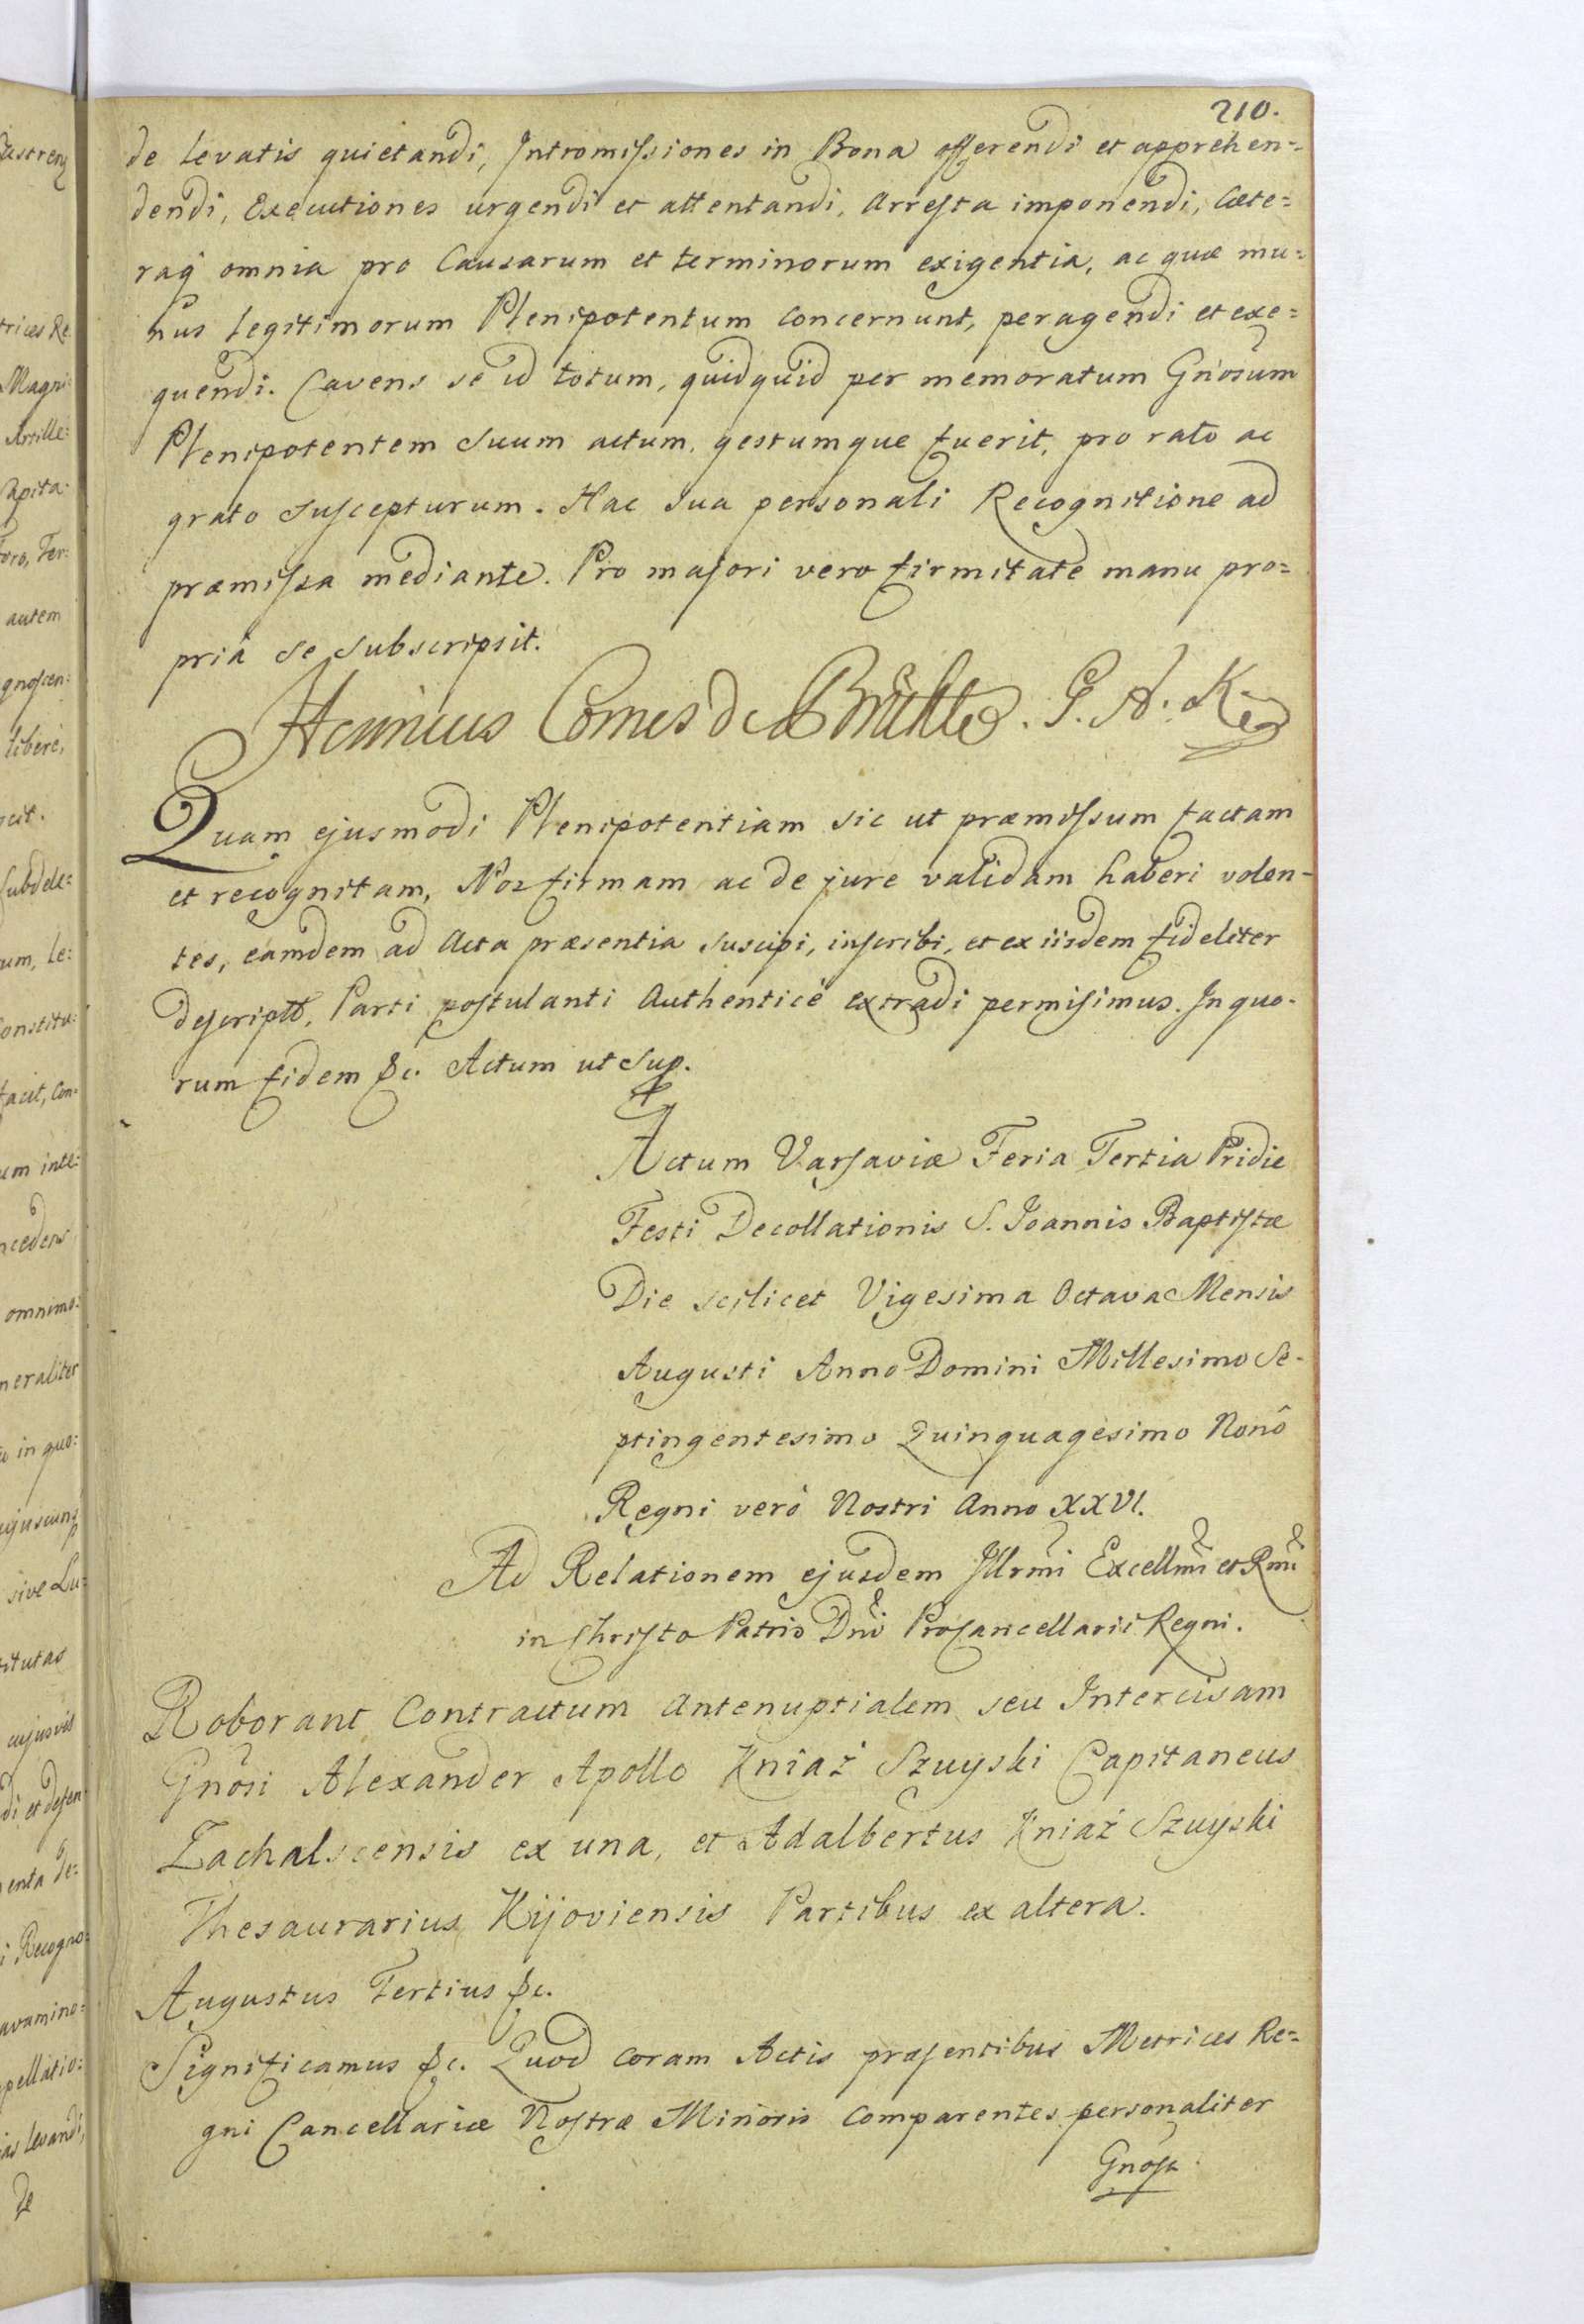 210.
de levatis quietandi, Intromissiones in Bona offerendi et apprehen=
dendi, Executiones urgendi et attentandi, Arresta imponendi, Cæte=
raq omnia pro Causarum et terminorum exigentia, ac quæ mu=
nus legitimorum Plenipotentum concernunt, peragendi et exe=
quendi. Cavens se id totum, quidquid per memoratum Gnosum
Plenipotentem suum actum, gestumque fuerit, pro rato ac
grato suscepturum. Hac sua personali Recognitione ad
præmissa mediante. Pro majori vero firmitate manu pro=
priâ se subscripsit.
Henricus Comes de Brühl. G. A. K.
Quam ejusmodi Plenipotentiam sic ut præmissum factam
et recognitam, Nos firmam ac de jure validam haberi volen-
tes, eamdem ad Acta præsentia suscipi, inscribi, et ex iisdem fideliter
descriptā, Parti postulanti Authenticè extradi permisimus. In quo-
rum fidem &c. Actum ut sup.
Actum Varsaviæ Feria Tertia Pridie
Festi Decollationis S. Joannis Baptistæ
Die scilicet Vigesima Octava Mensis
Augusti Anno Domini Millesimo Se-
ptingentesimo Quinquagesimo Nonô
Regni verò Nostri Anno XXVI.
Ad Relationem ejusdem Illrmi Excellmi et Rmi
in Christo Patris Dni Procancellarii Regni.
Roborant Contractum Antenuptialem seu Intercisam
Gnosi Alexander Apollo Kniaź Szuyski Capitaneus
Zachalscensis ex una, et Adalbertus Kniaź Szuyski
Thesaurarius Kijoviensis Partibus ex altera.
Augustus Tertius &c.
Significamus &c. Quod coram Actis præsentibus Metrices Re=
gni Cancellariæ Nostræ Minoris comparentes personaliter
Gnosi